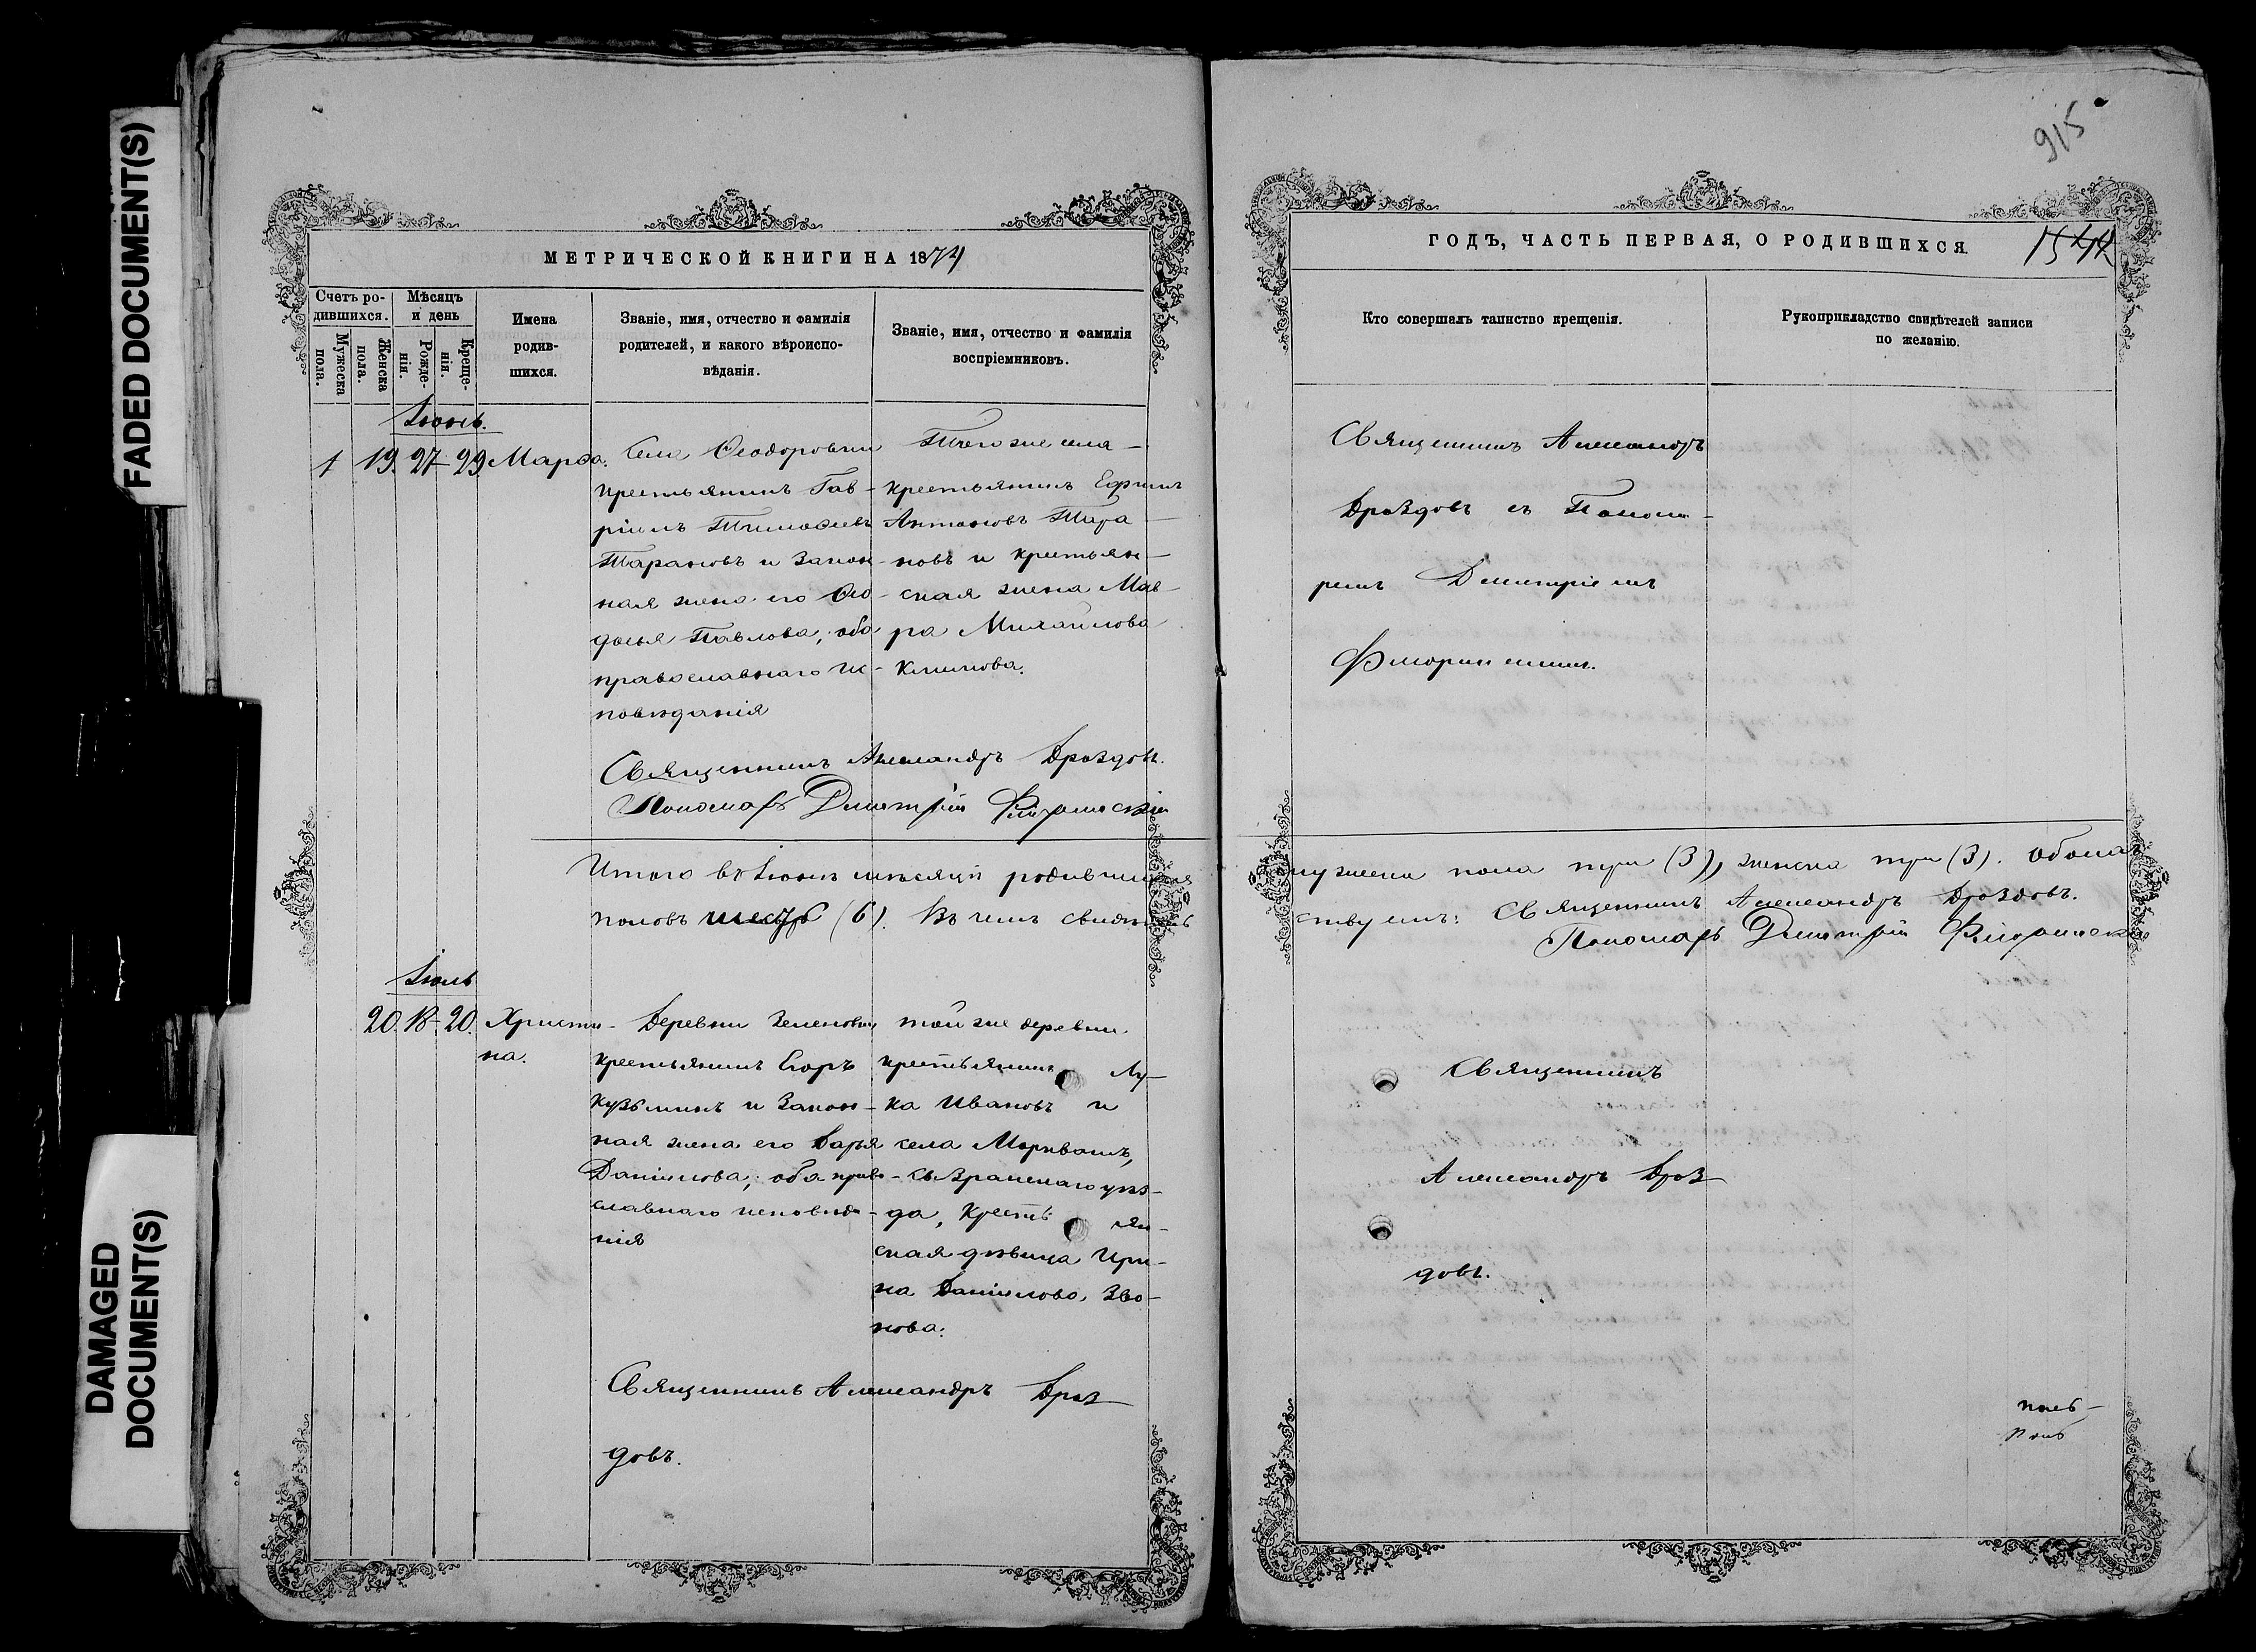 FADED DOCUMENT(S)
DAMAGED
DOCUMENT(S)
МЕТРИЧЕСКОЙ КНИГИ НА 1874
Счетъ ро-
дившихся.
Мужеска
пола.
Женска
пола.
Мѣсяцъ
и день
Рожде-
нія.
Креще-
нія.
Имена
родив-
шихся.
Званіе, имя, отчество и фамилія
родителей, и какого вѣроиспо-
вѣданія.
Званіе, имя, отчество и фамилія
воспріемниковъ.
Іюнь.
1 19. 27 - 29. Марѳа.
Села Ѳеодоровки
крестьянинъ Гав-
ріилъ Тимоѳеевъ
Тарановъ и закон-
ная жена его Ѳео-
досья Павлова; оба
православнаго ис-
повѣданія
Того же села
крестьянинъ Ефимъ
Антоновъ Тара-
новъ и крестьян-
ская жена Мав-
ра Михайлова
Климова.
Священникъ Александръ Дроздовъ.
Пономарь Димитрій
Итого въ Іюнѣ мѣсяцѣ родившихся
половъ шесть (6). Въ чемъ свидѣтель
Іюль
20. 18 - 20. Христи-
на.
Деревни Зеленовки
крестьянинъ Егоръ
Кузьминъ и закон-
ная жена его Дарья
Даніилова; оба право-
славнаго исповѣда-
нія
той же деревни
крестьянинъ Лу-
ка Ивановъ и
села Моркваш,
Сызранскаго уѣз-
да, крестьян-
ская дѣвица Ири-
на Даніилова Зво-
нова.
Священникъ Александръ Дроз-
довъ.
915
ГОДЪ, ЧАСТЬ ПЕРВАЯ, О РОДИВШИХСЯ.
Кто совершалъ таинство крещенія.
Рукоприкладство свидѣтелей записи
по желанію.
Священникъ Александръ
Дроздовъ съ Понома-
ремъ Димитріемъ
мужеска пола три (3), женска три (3). Обоихъ
ствуемъ: Священникъ Александръ Дроздовъ.
Пономарь Димитрій
Священникъ
Александръ Дроз-
довъ.